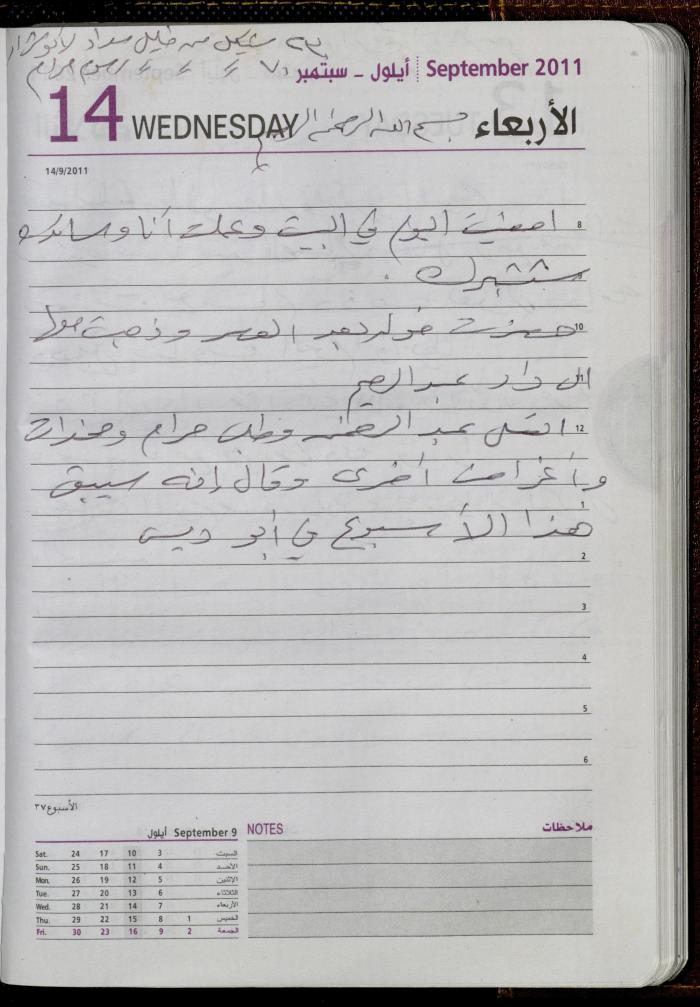 شيكل من خليل سداد لأبو
September 2011 أيلول – سبتمبر
14 WEDNESDAY بسم الله الرحمن الرحيم الأربعاء
14/9/2011
8 امضيت اليوم في البيت وعملت أنا و
10 حضرت خوله بعد العصر وذهبت معها
11 الى دار عبد الرحيم
12 اتصل عبد الرحمن وطلب حرام ومخدات
وأغراض أخرى وقال إنه سيبقى
1
هذا الأسبوع في أبو ديس
2
3
4
5
6
الأسبوع ٣٧
September 9 أيلول
NOTES ملاحظات
Sat. 24 17 10 3 السبت
Sun. 25 18 11 4 الأحد
Mon. 26 19 12 5 الإثنين
Tue. 27 20 13 6 الثلاثاء
Wed. 28 21 14 7 الأربعاء
Thu. 29 22 15 8 1 الخميس
Fri. 30 23 16 9 2 الجمعة